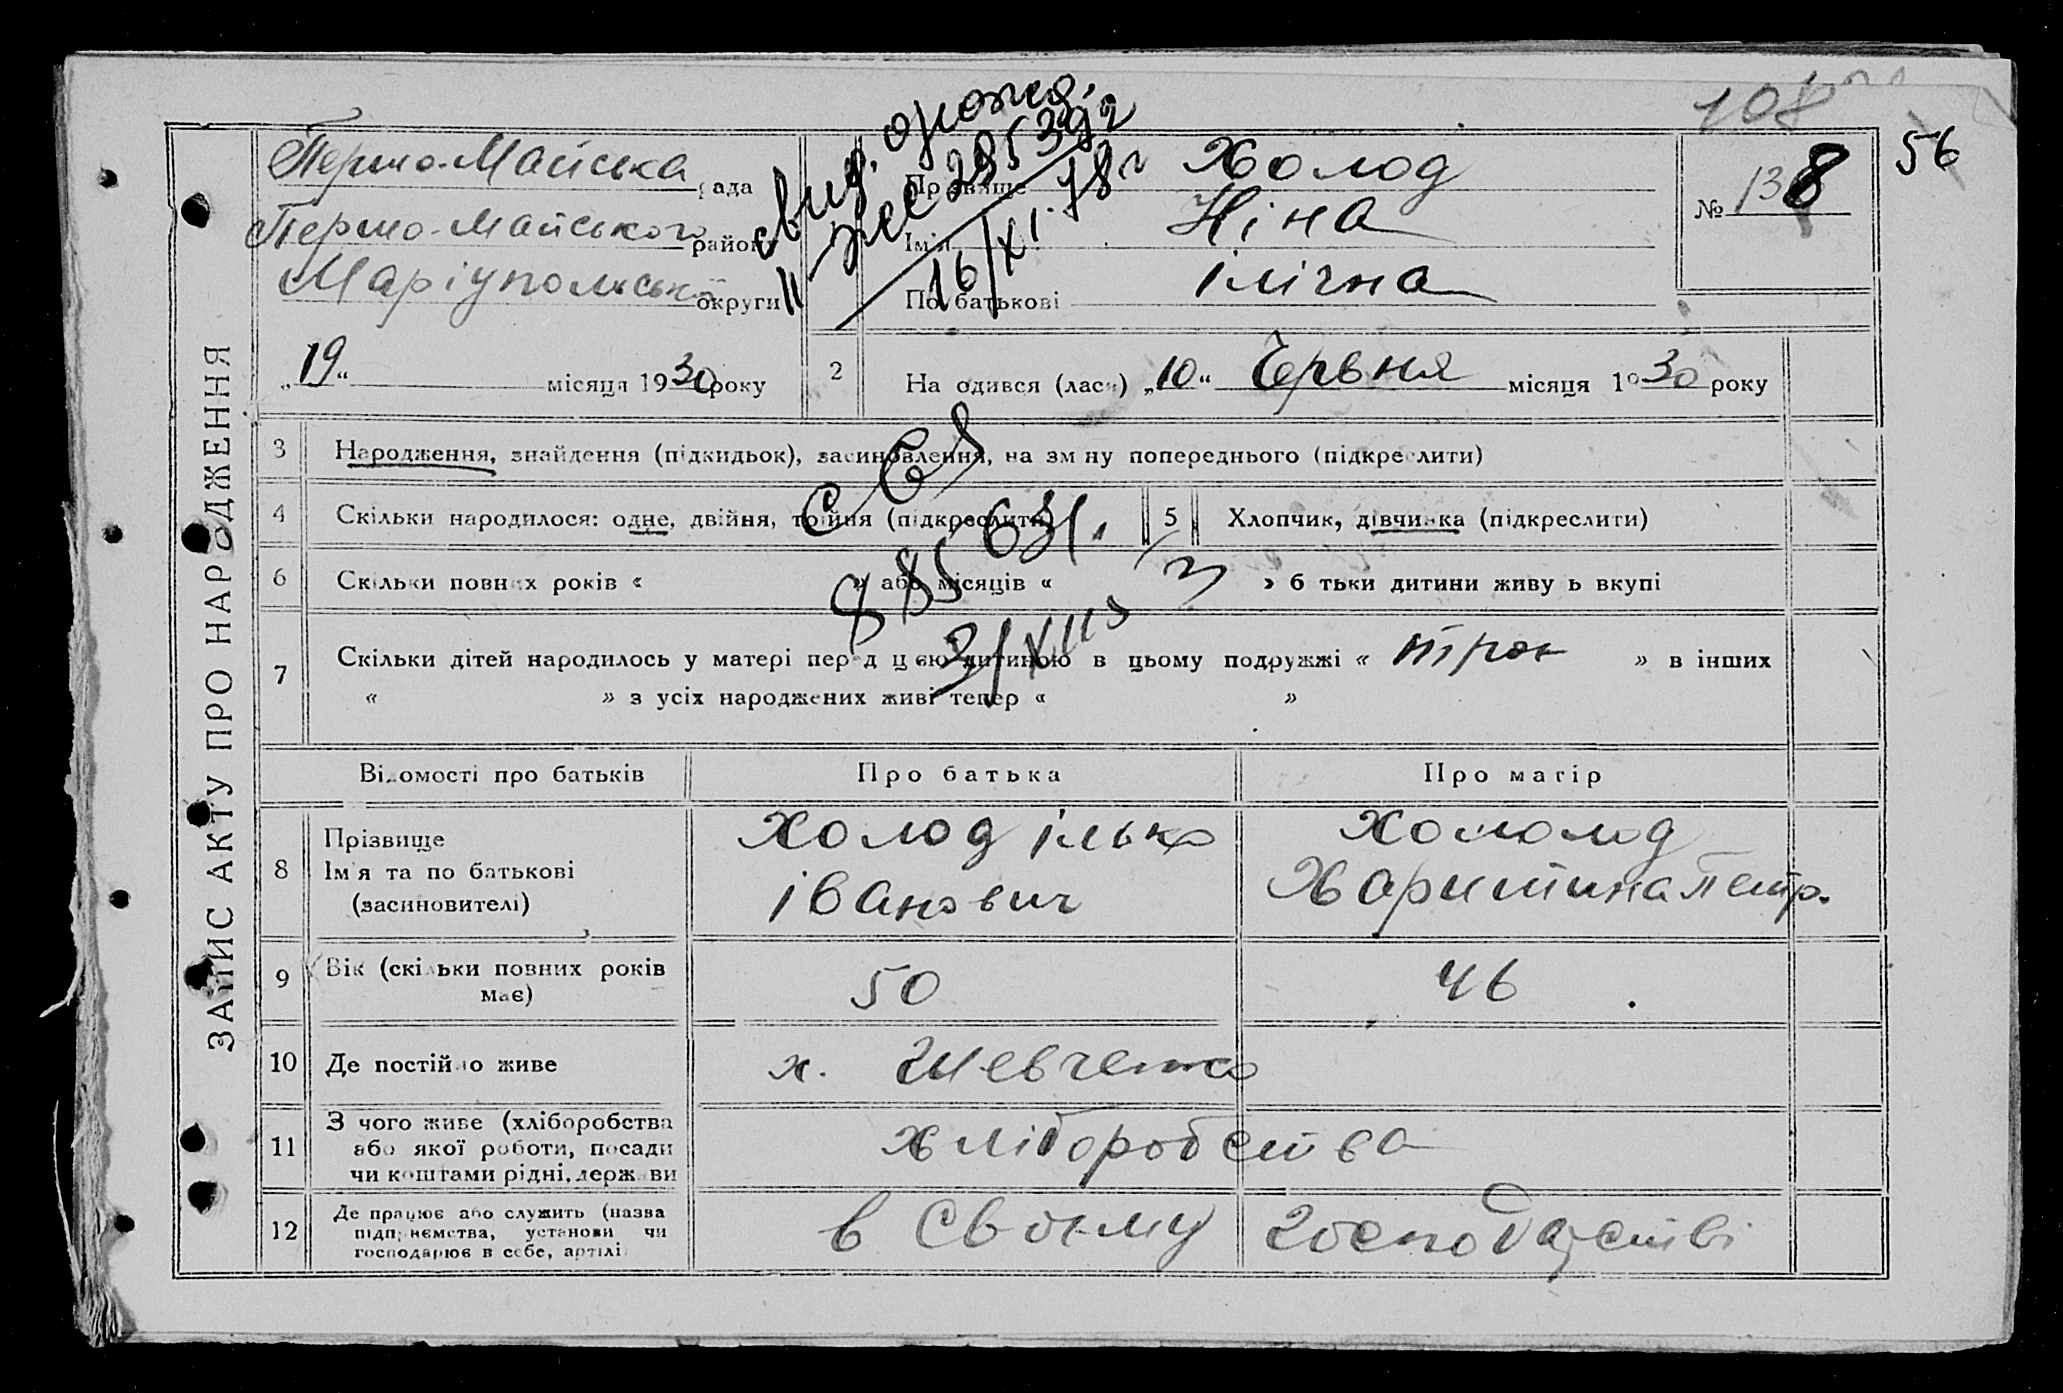 108
56
Перто-Майська рада
Перто-майського району
Маріупольської округи
„19“ місяця 1930 року
свид. 
16/XI-78г
Прізвище Холод
Ім'я Ніна
По батькові ілічна
№ 138
2 На одився (лась) „10“ Червня місяця 1930 року
ЗАПИС АКТУ ПРО НАРОДЖЕННЯ
3 Народження, знайдення (підкидьок), засиновлення, на зм ну попереднього (підкреслити)
4 Скільки народилося: одне, двійня, трійня (підкреслити)
5 Хлопчик, дівчинка (підкреслити)
6 Скільки повних років « » або місяців « » б тьки дитини живу ь вкупі
7 Скільки дітей народилось у матері перед цєю дитиною в цьому подружжі « » в інших
« » з усіх народжених живі тепер « »
Відомості про батьків
Про батька
Про матір
8 Прізвище
Ім'я та по батькові
(засиновителі)
Холод ілько
іванович
Харитина Петр.
9 Вік (скільки повних років
має)
50
46
10 Де постійно живе
х. Шевченко
11 З чого живе (хліборобства
або якої роботи, посади
чи коштами рідні, держави
хліборобства
12 Де працює або служить (назва
підприємства, установи чи
господарює в себе, артілі
в Своему Господарстві